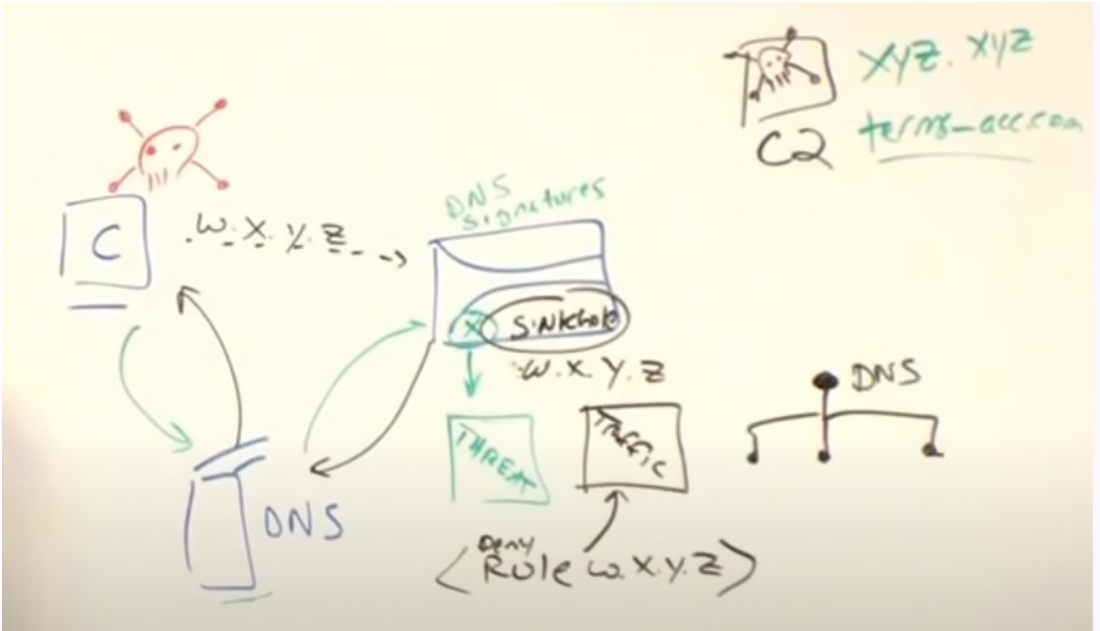 XYZ.XYZ
C2
terms-acc.com
DNS
Signatures
C
W.X.Y.Z
SINKHOLE
W.X.Y.Z
DNS
THREAT
TRAFFIC
DNS
Deny
Rule W.X.Y.Z